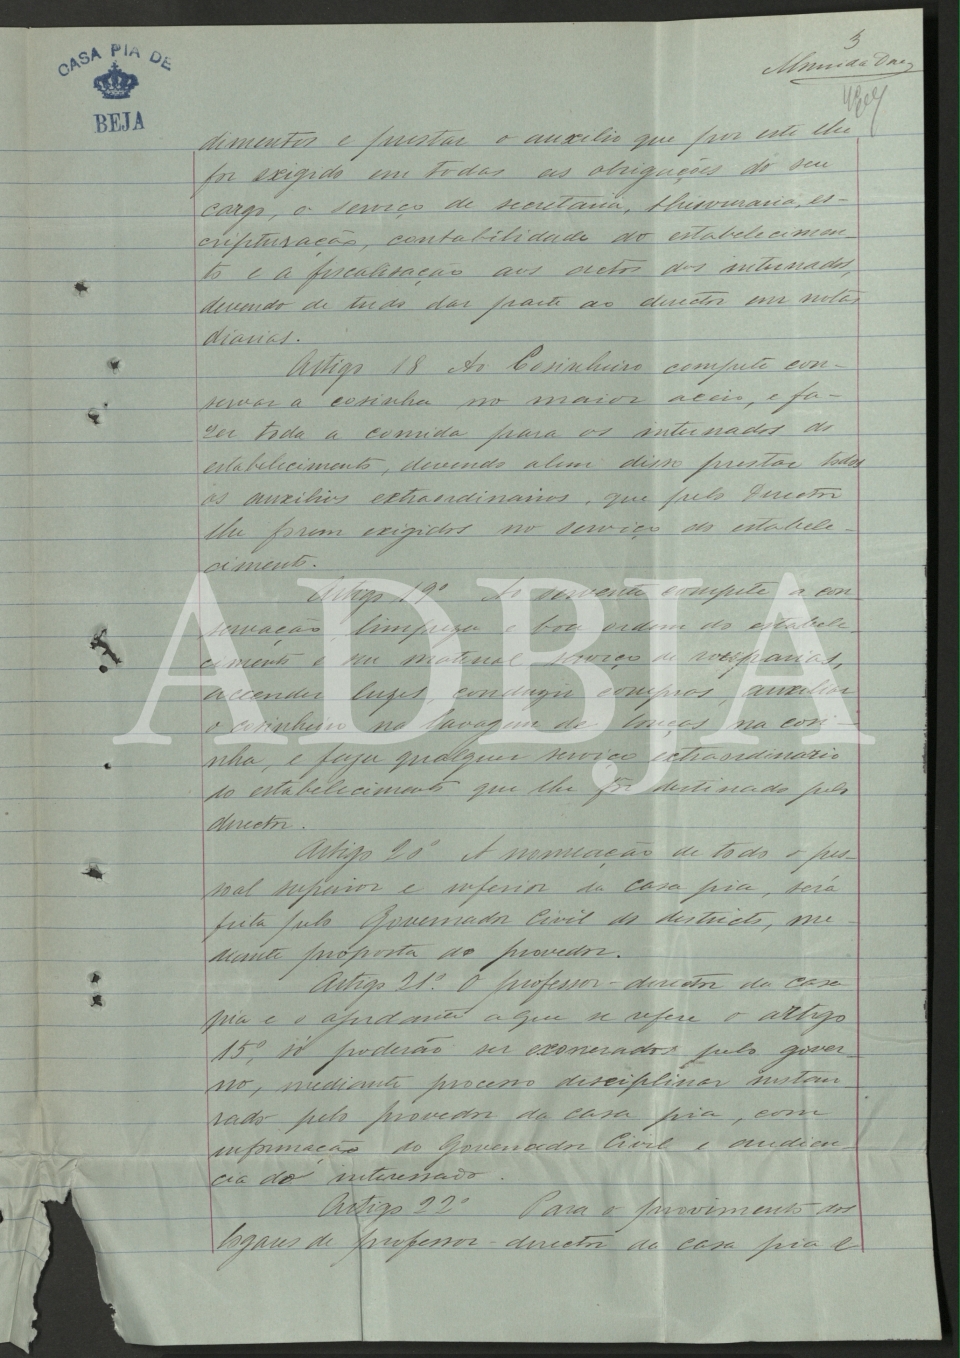 CASA PIA DE
BEJA
3
Almeida
dimentos e prestar o auxilio que por este lhe
for exigido em todas as obrigações do seu
cargo, o serviço de secretaria, thesouraria, es-
cripturação, contabilidade do estabelecimen-
to e a fiscalisação aos actos dos internados,
devendo de tudo dar parte ao director em notas
diarias.
Artigo 18 Ao Cosinheiro compete con-
servar a cosinha no maior aceio, e fa-
zer toda a comida para os internados do
estabelecimento, devendo alem disso prestar todos
os auxilios extraordinarios, que pelo Director
lhe forem exigidos no serviço do estabele-
cimento.
Artigo 19º Ao servente compete a con-
servação, limpeza e boa ordem do estabele-
cimento e seu material serviço de
accender luzes, conduzir compras, auxiliar
o cosinheiro na lavagem de louças na cosi-
nha, e faza qualquer serviço extraordinario
do estabelecimento que lhe fôr destinado pelo
director.
Artigo 20º A nomeação de todo o pes-
soal superior e inferior da casa pia, será
feita pelo Governador Civil do districto, me-
diante proposta do provedor.
Artigo 21º. O professor-director da casa
pia e o ajudante a que se refere o artigo
15º, só poderão ser exonerados pelo gover-
no, mediante processo disciplinar instau
rado pelo provedor da casa pia, com
informação do Governador Civil e audien-
cia do interessado.
Artigo 22º Para o provimento dos
logares de professor-director da casa pia e
ADBJA